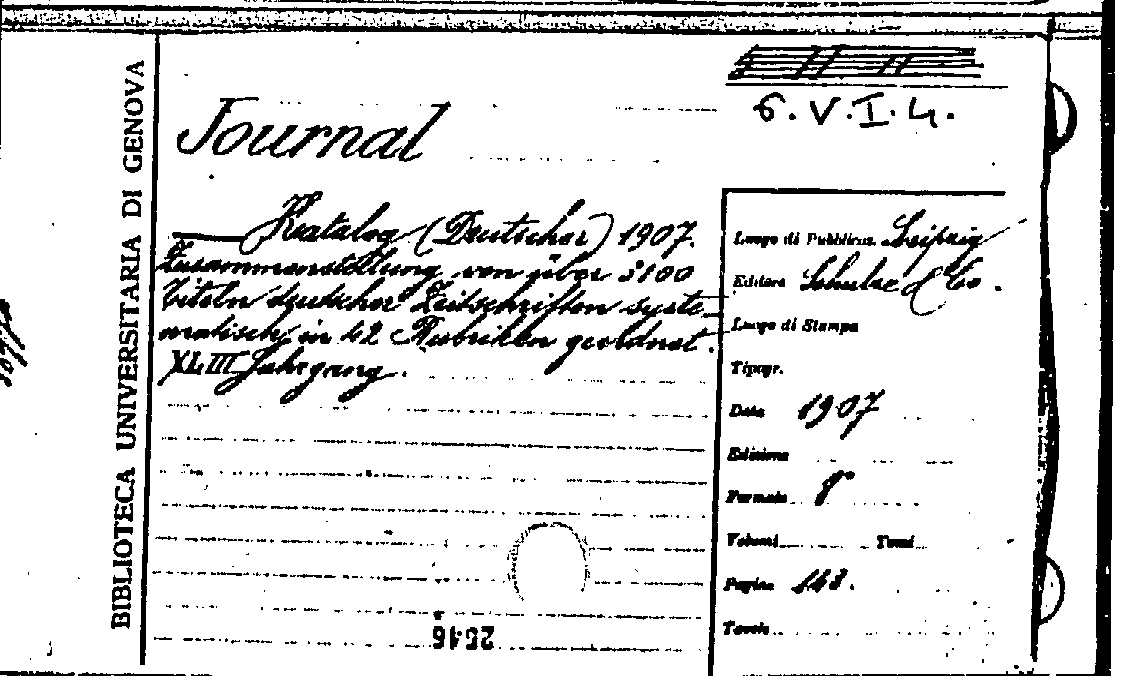 BIBLIOTECA UNIVERSITARIA DI GENOVA
6.V.I.4.
Journal
Katalog (Deutscher) 1907.
Zusammenstellung von über 3100
Titeln deutscher Zeitschriften syste-
matisch in 42 Rubriken geordnet.
XLIII Jahrgang.
Luogo di Pubblicaz. Leipzig
Editore Schulze & Co.
Luogo di Stampa
Tipogr.
Data 1907
Edizione
Formato 8°
Volumi Tomi
Pagine 148.
Tavole
2546